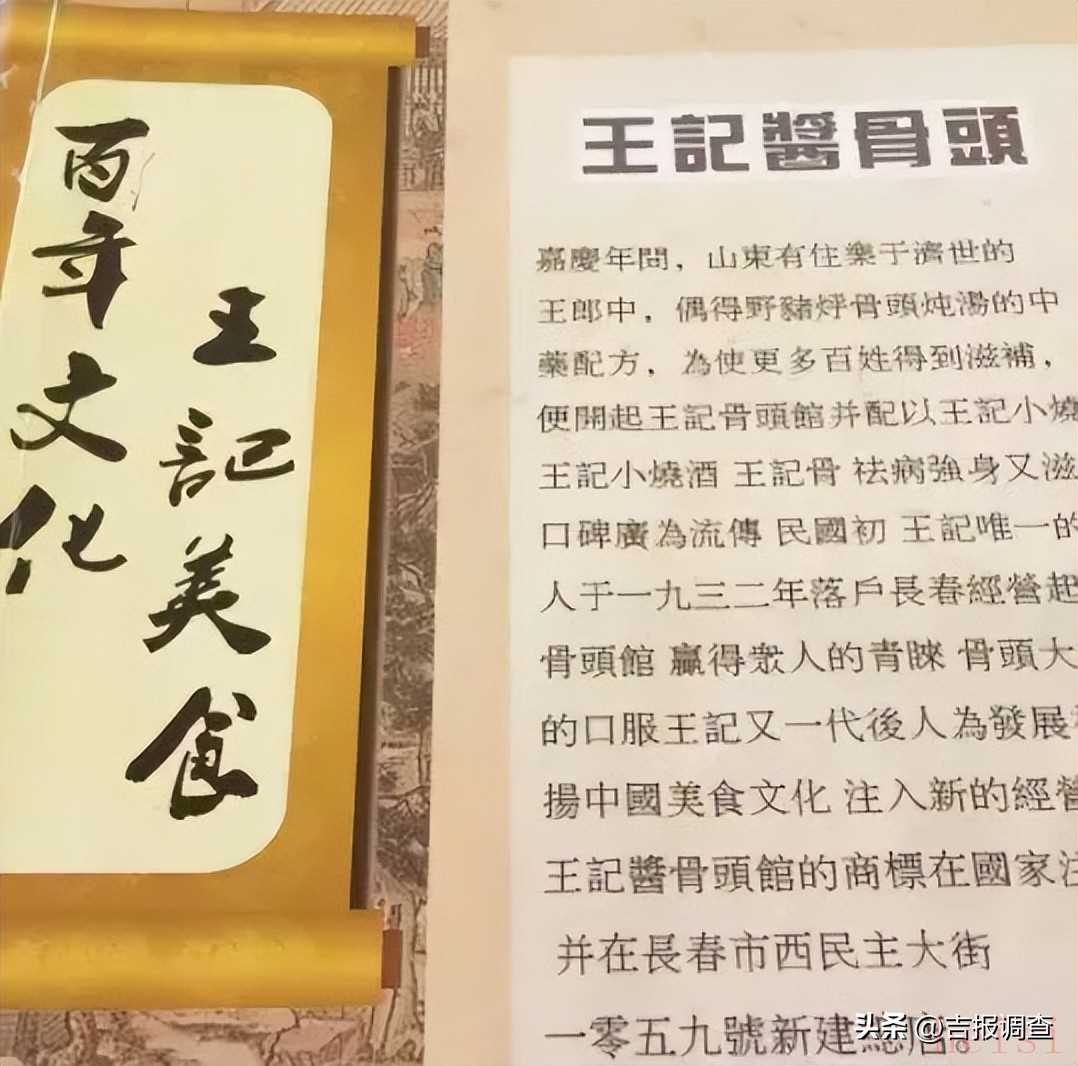 百年文化
王記美食
王記醬骨頭
嘉慶年間，山東有住樂于濟世的
王郎中，偶得野豬烀骨頭炖湯的中
藥配方，為使更多百姓得到滋補，
便開起王記骨頭館并配以王記小燒
王記小燒酒 王記骨 祛病強身又滋
口碑廣為流傳 民國初 王記唯一的
人于一九三二年落戶長春經營起
骨頭館 贏得眾人的青睞 骨頭大
的口服王記又一代後人為發展
揚中國美食文化 注入新的經營
王記醬骨頭館的商標在國家注
并在長春市西民主大街
一零五九號新建總店。
头条 @吉报调查